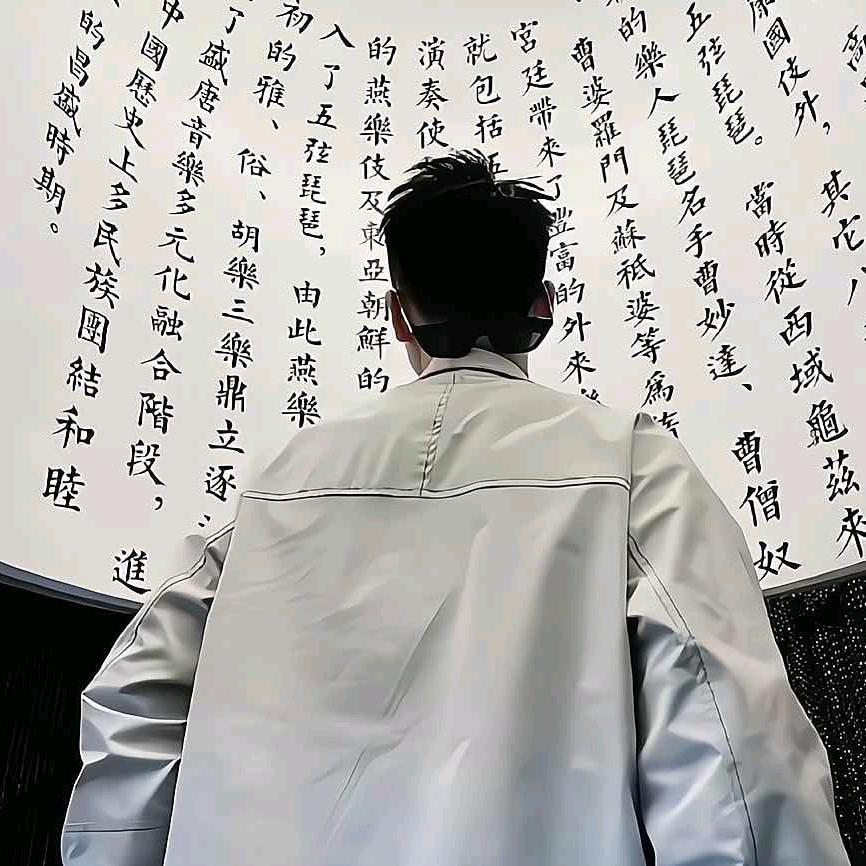 康國伎外，其它八
五弦琵琶。當時從西域龜茲來
的樂人琵琶名手曹妙達、曹僧奴
曹婆羅門及蘇祗婆等爲
宮廷帶來了豐富的外來
就包括五
演奏使
的燕樂伎及東亞朝鮮的
入了五弦琵琶，由此燕樂
初的雅、俗、胡樂三樂鼎立逐
了盛唐音樂多元化融合階段，進
中國歷史上多民族團結和睦
的昌盛時期。